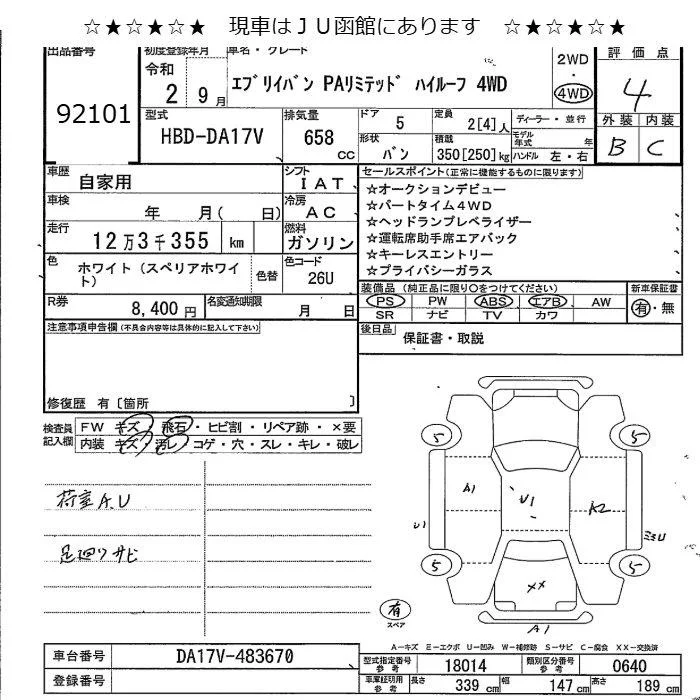 ☆★☆★☆★　現車はＪＵ函館にあります　☆★☆★☆★
出品番号
92101
初度登録年月
令和
2 9月
車名・グレード
エブリイバン PAリミテッド ハイルーフ 4WD
2WD
・
4WD
評価点
4
外装 内装
B C
型式
HBD-DA17V
排気量
658
CC
ドア
5
定員
2[4]人
ディーラー・並行
形状
バン
積載
350[250]kg
モデル年式 年
ハンドル 左・右
車歴
自家用
シフト
IAT
車検
年 月( 日)
冷房
AC
走行
12万3千355 km
燃料
ガソリン
色
ホワイト(スペリアホワイト)
色替
色コード
26U
R券
8,400円
名変通知期限
月 日
セールスポイント(正常に機能するものに限ります)
☆オークションデビュー
☆パートタイム4WD
☆ヘッドランプレベライザー
☆運転席助手席エアバック
☆キーレスエントリー
☆プライバシーガラス
装備品 (純正品に限り○をつけてください)
PS PW ABS エアB AW
SR ナビ TV カワ
新車保証書
有・無
後日品
保証書・取説
注意事項申告欄(不具合内容等は具体的に記入して下さい)
修復歴 有〔箇所 〕
検査員記入欄
FW キズ・飛石・ヒビ割・リペア跡・×要
内装 キズ・汚レ・コゲ・穴・スレ・キレ・破レ
荷室A.U
足廻りサビ
5 5
A1 U1 A2
U1 ミミU
5 5
XX
A1
有
スペア
A―キズ E―エクボ U―凹み W―補修跡 S―サビ C―腐食 XX―交換済
車台番号
DA17V-483670
登録番号
型式指定番号 参考
18014
類別区分番号 参考
0640
車庫証明用 参考
長さ 339 cm 幅 147 cm 高さ 189 cm